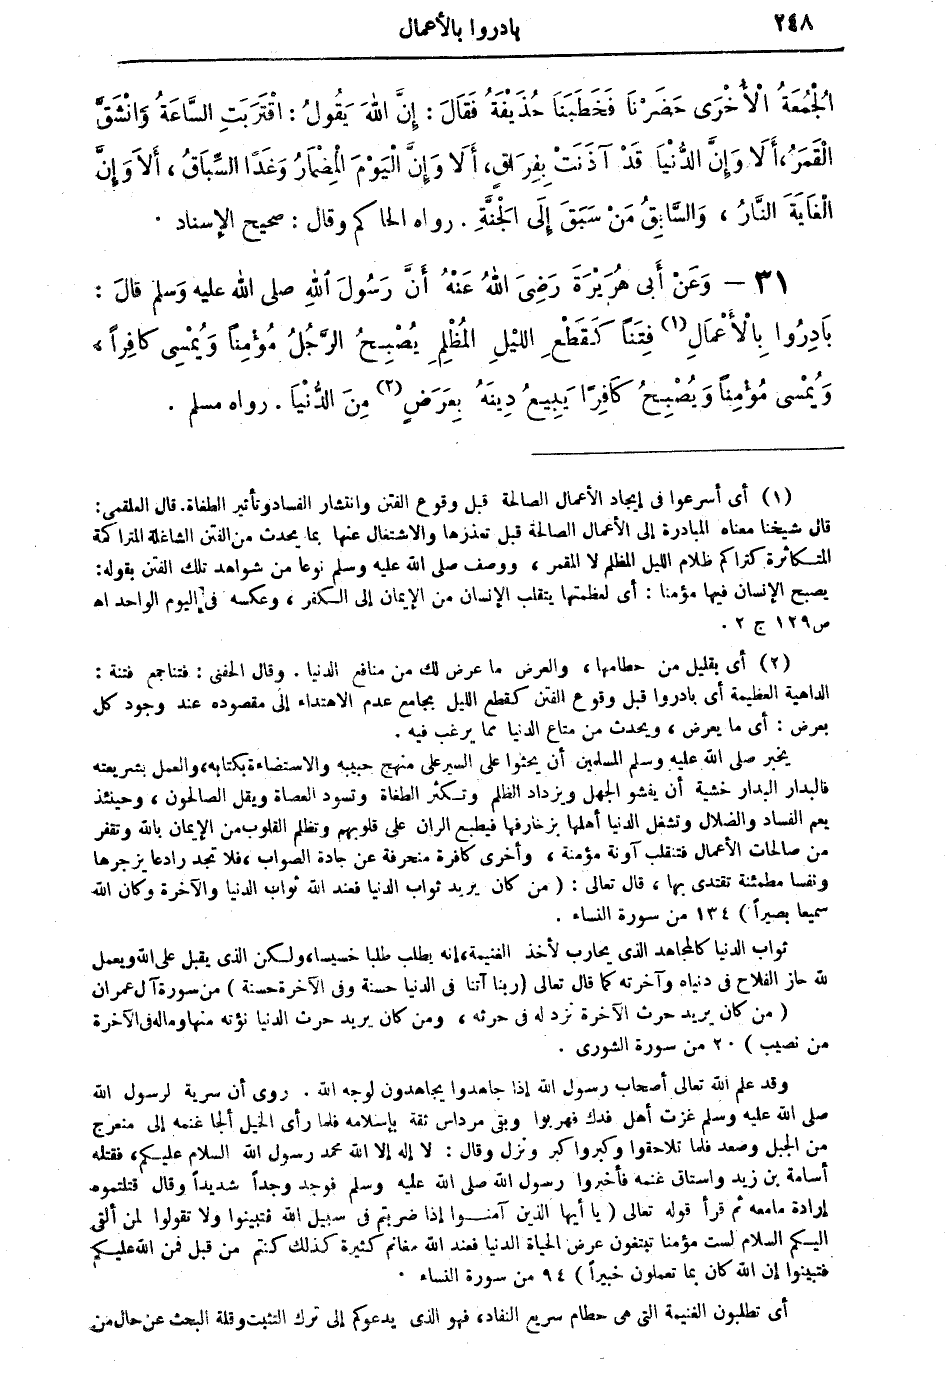 ٢٤٨
بادروا بالأعمال
الْجُمُعَةُ الْأُخْرَى حَضَرْنَا فَخَطَبَنَا حُذَيْفَةُ فَقَالَ : إِنَّ اللهَ يَقُولُ : اقْتَرَبَتِ السَّاعَةُ وَانْشَقَّ
الْقَمَرُ ، أَلَا وَإِنَّ الدُّنْيَا قَدْ آذَنَتْ بِفِرَاقٍ، أَلَا وَإِنَّ الْيَوْمَ الْمِضْمَارُ وَغَدًا السِّبَاقُ ، أَلَا وَإِنَّ
الْغَايَةَ النَّارُ ، وَالسَّابِقُ مَنْ سَبَقَ إِلَى الْجَنَّةِ . رواه الحاكم وقال : صحيح الإسناد .
٣١ – وَعَنْ أَبِى هُرَيْرَةَ رَضِىَ اللهُ عَنْهُ أَنَّ رَسُولَ اللهِ صلى الله عليه وَسلم قالَ :
بَادِرُوا بِالْأَعْمَالِ (١) فِتَنًا كَقِطَعِ الليْلِ الْمُظْلِمِ يُصْبِحُ الرَّجُلُ مُؤْمِنًا وَيُمْسِى كافِراً ،
وَيُمْسِى مُؤْمِنًا وَيُصْبِحُ كَافِرًا يَبِيعُ دِينَهُ بِعَرَضٍ (٢) مِنَ الدُّنْيَا . رواه مسلم .
(١) أى أسرعوا فى إيجاد الأعمال الصالحة قبل وقوع الفتن وانتشار الفساد وتأثير الطغاة. قال العلقمى:
قال شيخنا معناه المبادرة إلى الأعمال الصالحة قبل تعذرها والاشتغال عنها بما يحدث من الفتن الشاغلة المتراكمة
المتكاثرة كتراكم ظلام الليل المظلم لا المقمر ، ووصف صلى الله عليه وسلم نوعا من شواهد تلك الفتن بقوله:
يصبح الإنسان فيها مؤمنا : أى لعظمتها يتقلب الإنسان من الإيمان إلى الكفر ، وعكسه فى اليوم الواحد اه
ص ١٢٩ ج ٢ .
(٢) أى بقليل من حطامها ، والعرض ما عرض لك من منافع الدنيا . وقال الحفنى : فتنا جمع فتنة :
الداهية العظيمة أى بادروا قبل وقوع الفتن كقطع الليل بجامع عدم الاهتداء إلى مقصوده عند وجود كل
بعرض : أى ما يعرض ، ويحدث من متاع الدنيا مما يرغب فيه .
يخبر صلى الله عليه وسلم المسلمين أن يحثوا على السير على منهج حبيبه والاستضاءة بكتابه، والعمل بشريعته
فالبدار البدار خشية أن يفشو الجهل ويزداد الظلم وتكثر الطغاة وتسود العصاة ويقل الصالحون ، وحينئذ
يعم الفساد والضلال وتشغل الدنيا أهلها بزخارفها فيطبع الران على قلوبهم وتظلم القلوب من الإيمان بالله وتقفر
من صالحات الأعمال فتنقلب آونة مؤمنة ، وأخرى كافرة منحرفة عن جادة الصواب ، فلا تجد رادعا يزجرها
ونفسا مطمئنة تقتدى بها ، قال تعالى : ( من كان يريد ثواب الدنيا فعند الله ثواب الدنيا والآخرة وكان الله
سميعا بصيراً ) ١٣٤ من سورة النساء .
ثواب الدنيا كالمجاهد الذى يحارب لأخذ الغنيمة، إنه يطلب طلبا خسيسا، ولكن الذى يقبل على الله ويعمل
لله حاز الفلاح فى دنياه وآخرته كما قال تعالى (ربنا آتنا فى الدنيا حسنة وفى الآخرة حسنة ) من سورة آل عمران
( من كان يريد حرث الآخرة نزد له فى حرثه ، ومن كان يريد حرث الدنيا نؤته منها وماله فى الآخرة
من نصيب ) ٢٠ من سورة الشورى .
وقد علم الله تعالى أصحاب رسول الله إذا جاهدوا يجاهدون لوجه الله . روى أن سرية لرسول الله
صلى الله عليه وسلم غزت أهل فدك فهربوا وبقى مرداس ثقة بإسلامه فلما رأى الخيل ألجأ غنمه إلى منعرج
من الجبل وصعد فلما تلاحقوا وكبروا كبر ونزل وقال : لا إله إلا الله محمد رسول الله السلام عليكم، فقتله
أسامة بن زيد واستاق غنمه فأخبروا رسول الله صلى الله عليه وسلم فوجد وجداً شديداً وقال قتلتموه
إرادة مامعه ثم قرأ قوله تعالى ( يا أيها الذين آمنوا إذا ضربتم فى سبيل الله فتبينوا ولا تقولوا لمن ألقى
اليكم السلام لست مؤمنا تبتغون عرض الحياة الدنيا فعند الله مغانم كثيرة كذلك كنتم من قبل فمن الله عليكم
فتبينوا إن الله كان بما تعملون خبيراً ) ٩٤ من سورة النساء .
أى تطلبون الغنيمة التى هى حطام سريع النفاد، فهو الذى يدعوكم إلى ترك التثبت وقلة البحث عن حال من